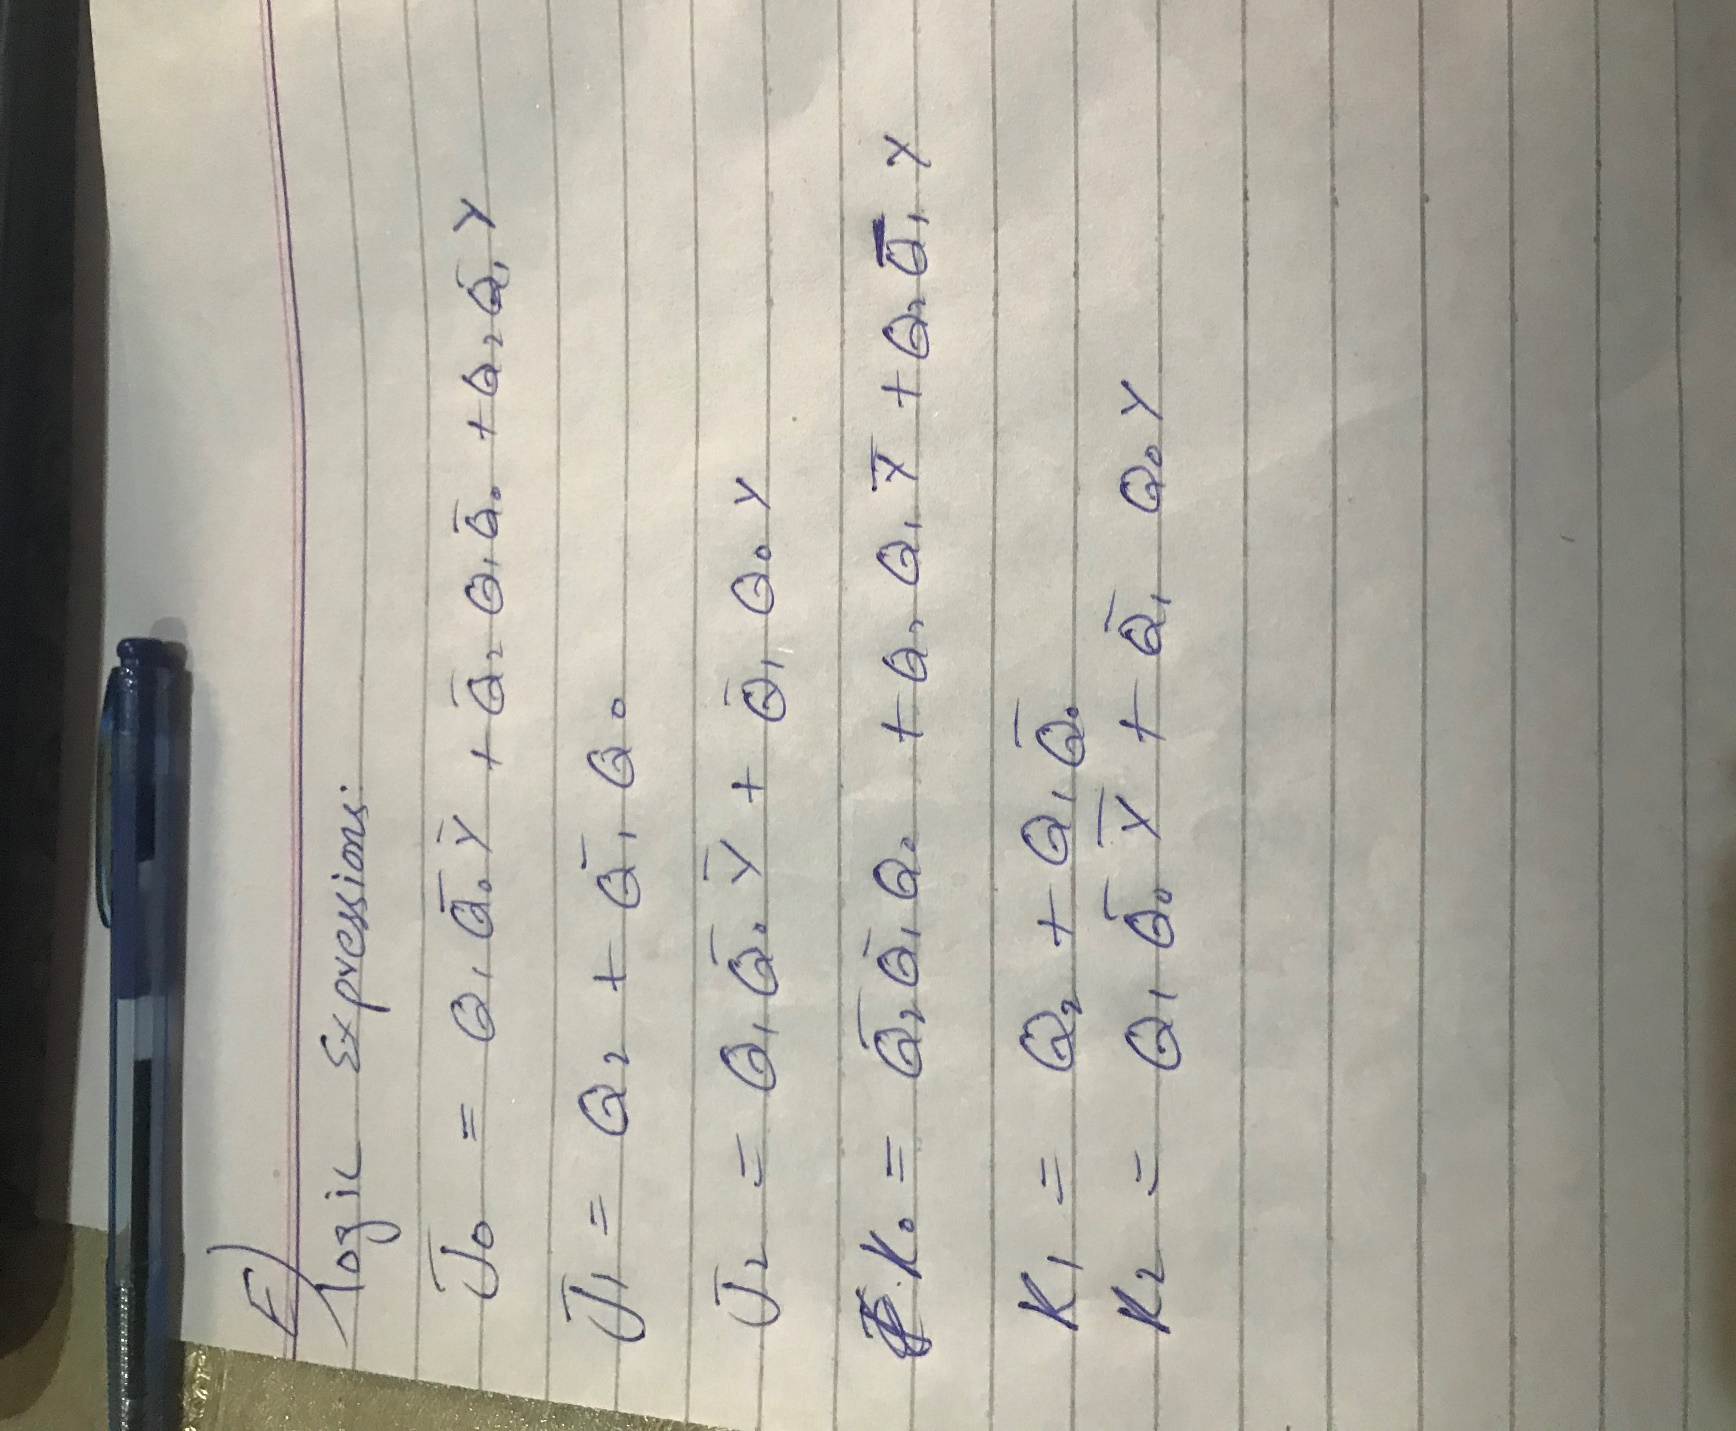 E)
logic Expressions:
J₀ = Q₁Q̄₀Ȳ + Q̄₂Q₁Q̄₀ + Q₂Q̄₁Y
J₁ = Q₂ + Q̄₁Q₀
J₂ = Q₁Q̄₀Ȳ + Q̄₁Q₀Y
K₀ = Q̄₂Q̄₁Q₀ + Q₂Q₁Ȳ + Q₂Q̄₁Y
K₁ = Q₂ + Q₁Q̄₀
K₂ = Q₁Q̄₀Ȳ + Q̄₁Q₀Y